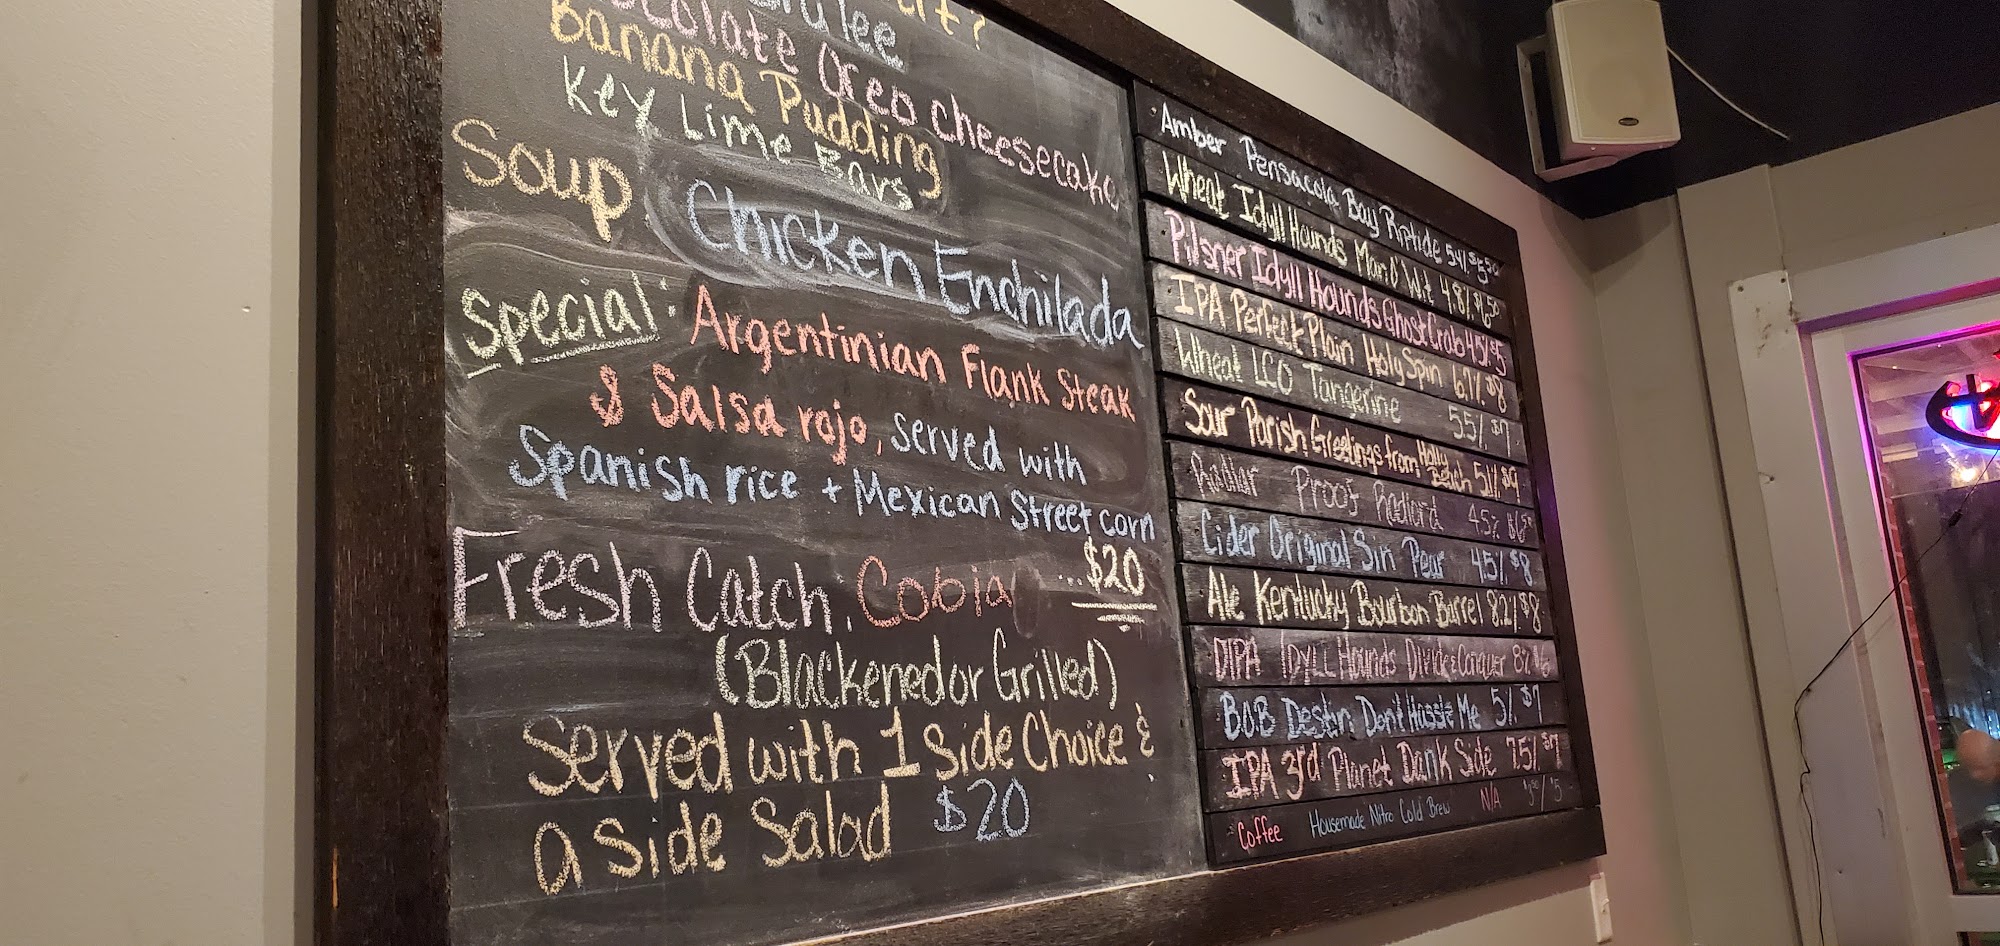 rulee
ocolate Oreo Cheesecake
Banana Pudding
Key Lime Bars
Soup Chicken Enchilada
Special: Argentinian Flank Steak
& Salsa rojo, served with
Spanish rice + Mexican Street corn
...$20
Fresh Catch. Cobia
(Blackened or Grilled)
Served with 1 side Choice &
a side Salad $20
Amber Pensacola Bay Riptide 5.4% $5.50
Wheat Idyll Hounds Man O' Wit 4.8% $6.50
Pilsner Idyll Hounds Ghost Crab 4.5% $5
IPA Perfect Plain Holy Spin 6.7% $8
Wheat LCO Tangerine 5.5% $7
Sour Parish Greetings from Holly
Beach 5.1% $9
Radlar Proof Radlord 4.5%
Cider Original Sin Pear 4.5% $8
Ale Kentucky Bourbon Barrel 8.2% $8
DIPA IDYLL Hounds Divide & Conquer 8% $6
BOB Destin Don't Hassle Me 5% $7
IPA 3rd Planet Dank Side 7.5% $7
Coffee Housemade Nitro Cold Brew N/A